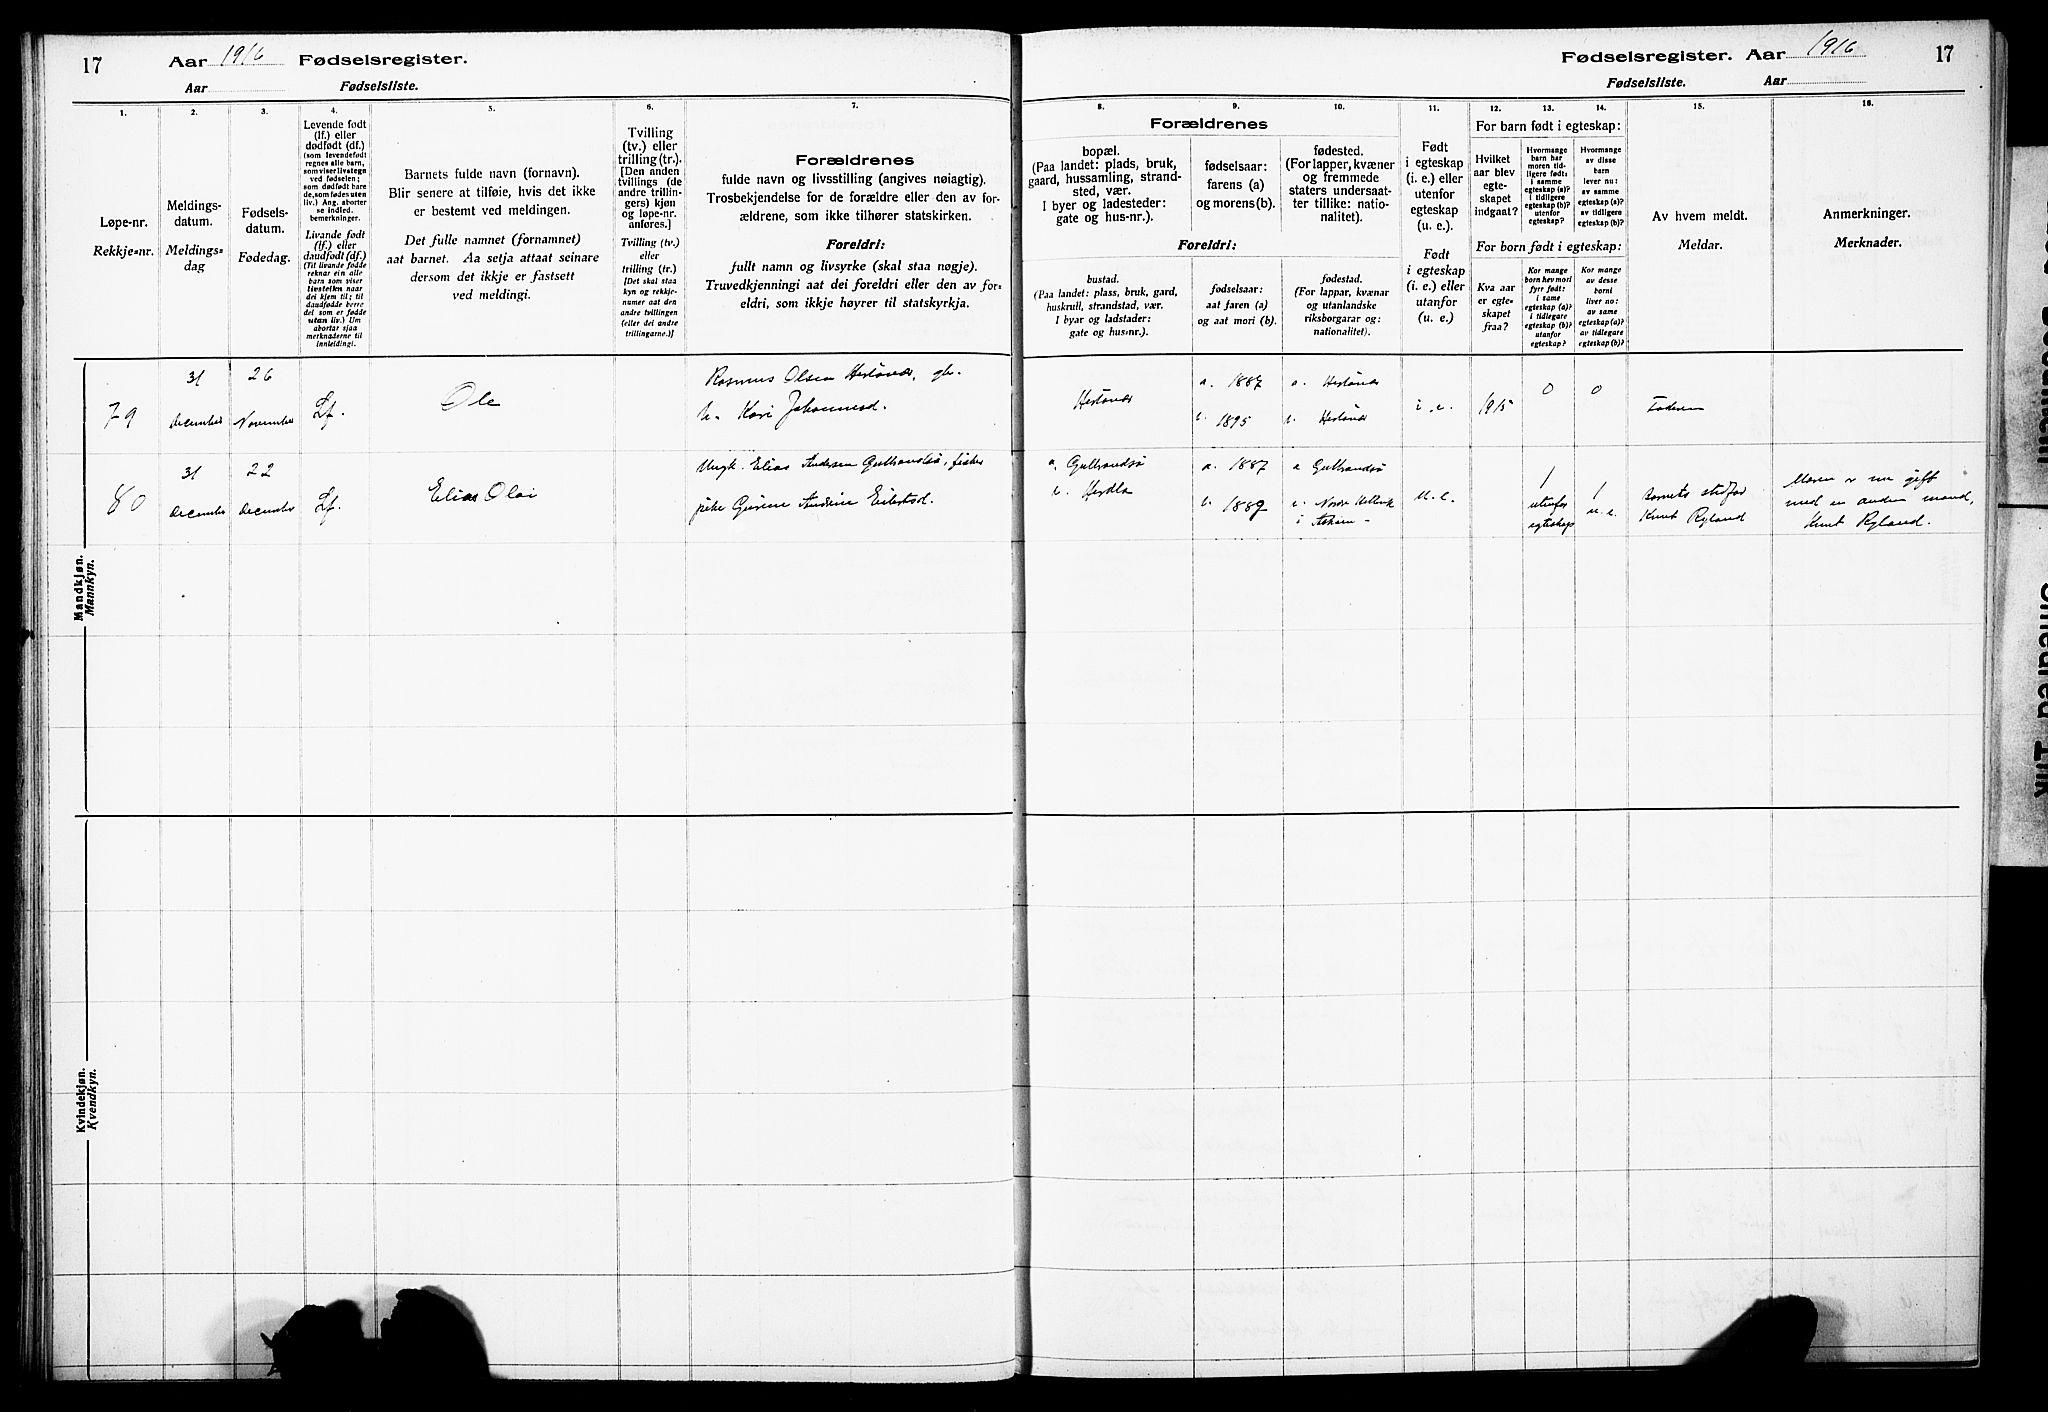 17
Aar 1916 Fødselsregister.
Aar Fødselsliste.
1.
2.
3.
4.
5.
6.
7.
Løpe-nr.
Rekkje=nr.
Meldings-
datum.
Meldings=
dag
Fødsels-
datum.
Fødedag.
Levende født
(lf.) eller
dødfødt (df.)
(som levendefødt
regnes alle barn,
som viser livstegn
ved fødselen;
som dødfødt bare
de, som fødes uten
liv.) Ang. aborter
se indled.
bemerkninger.
Livande født
(lf.) eller
daudfødt (df.)
(Til livande fødde
reknar ein alle
barn som viser
livsteikn naar
dei kjem til; til
daudfødde berre
dei som er fødde
utan liv.) Um
abortar sjaa
merknaderne til
innleidingi.
Barnets fulde navn (fornavn).
Blir senere at tilføie, hvis det ikke
er bestemt ved meldingen.
Det fulle namnet (fornamnet)
aat barnet. Aa setja attaat seinare
dersom det ikkje er fastsett
ved meldingi.
Tvilling
(tv.) eller
trilling (tr.).
[Den anden
tvillings (de
andre trillin-
gers) kjøn
og løpe-nr.
anføres.]
Tvilling (tv.)
eller
trilling (tr.)
[Det skal staa
kyn og rekkje-
numer aat den
andre tvillingen
(eller dei andre
trillingarne.)]
Forældrenes
fulde navn og livsstilling (angives nøiagtig).
Trosbekjendelse for de forældre eller den av for-
ældrene, som ikke tilhører statskirken.
Foreldri:
fullt namn og livsyrke (skal staa nøgje).
Truvedkjenningi aat dei foreldri eller den av for-
eldri, som ikkje høyrer til statskyrkja.
Mandkjøn.
Mannkyn.
79
31
december
26
November
Lf.
Ole
Rasmus Olsen Hestönes, gb.
h. Kari Johannesd.
80
31
december
22
december
Lf.
Elias Olai
Ungk. Elias Andersen Gulbrandsö, fisker
pike Gurine Andrine Eilertsd.
Kvindekjøn.
Kvendkyn.
Fødselsregister. Aar 1916
17
Fødselsliste. Aar
8.
9.
10.
11.
12.
13.
14.
15.
16.
Forældrenes
bopæl.
(Paa landet: plads, bruk,
gaard, hussamling, strand-
sted, vær.
I byer og ladesteder:
gate og hus-nr.).
fødselsaar:
farens (a)
og morens (b).
fødested.
(For lapper, kvæner
og fremmede
staters undersaat-
ter tillike: natio-
nalitet).
Foreldri:
bustad.
(Paa landet: plass, bruk, gard,
huskrull, strandstad, vær.
I byar og ladstader:
gate og hus=nr.).
fødselsaar:
aat faren (a)
og aat mori (b).
fødestad.
(For lappar, kvænar
og utanlandske
riksborgarar og:
nationalitet).
Født
i egteskap
(i. e.) eller
utenfor
egteskap
(u. e.).
Født
i egteskap
(i. e.) eller
utanfor
(u. e.)
For barn født i egteskap:
Hvilket
aar blev
egte-
skapet
indgaat?
Hvormange
barn har
moren tid-
ligere født:
i samme
egteskap (a)?
i tidligere
egteskap (b)?
utenfor
egteskap?
Hvormange
av disse
barn
lever nu:
av samme
egteskap (a)?
av tidligere
egteskap (b)?
For born født i egteskap:
Kva aar
er egte=
skapet
fraa?
Kor mange
born hev mori
fyrr født:
i same
egteskap (a)?
i tidlegare
egteskap (b)?
utanfor
egteskap?
Kor mange
av desse
borni
liver no:
av same
egteskap (a)?
av tidlegare
egteskap (b)?
Av hvem meldt.
Meldar.
Anmerkninger.
Merknader.
Hestönes
a. 1887
b. 1895
a. Hestönes
b. Hestönes
i. e.
1915
0
0
Faderen
a. Gulbrandsö
b. Herdla
a. 1887
b. 1889
a. Gulbrandsö
i Askøen
u. e.
1
utenfor
egteskap
1
u. e.
Barnets stedfar
Knut Ryland
Moren er nu gift
med en anden mand,
Knut Ryland.